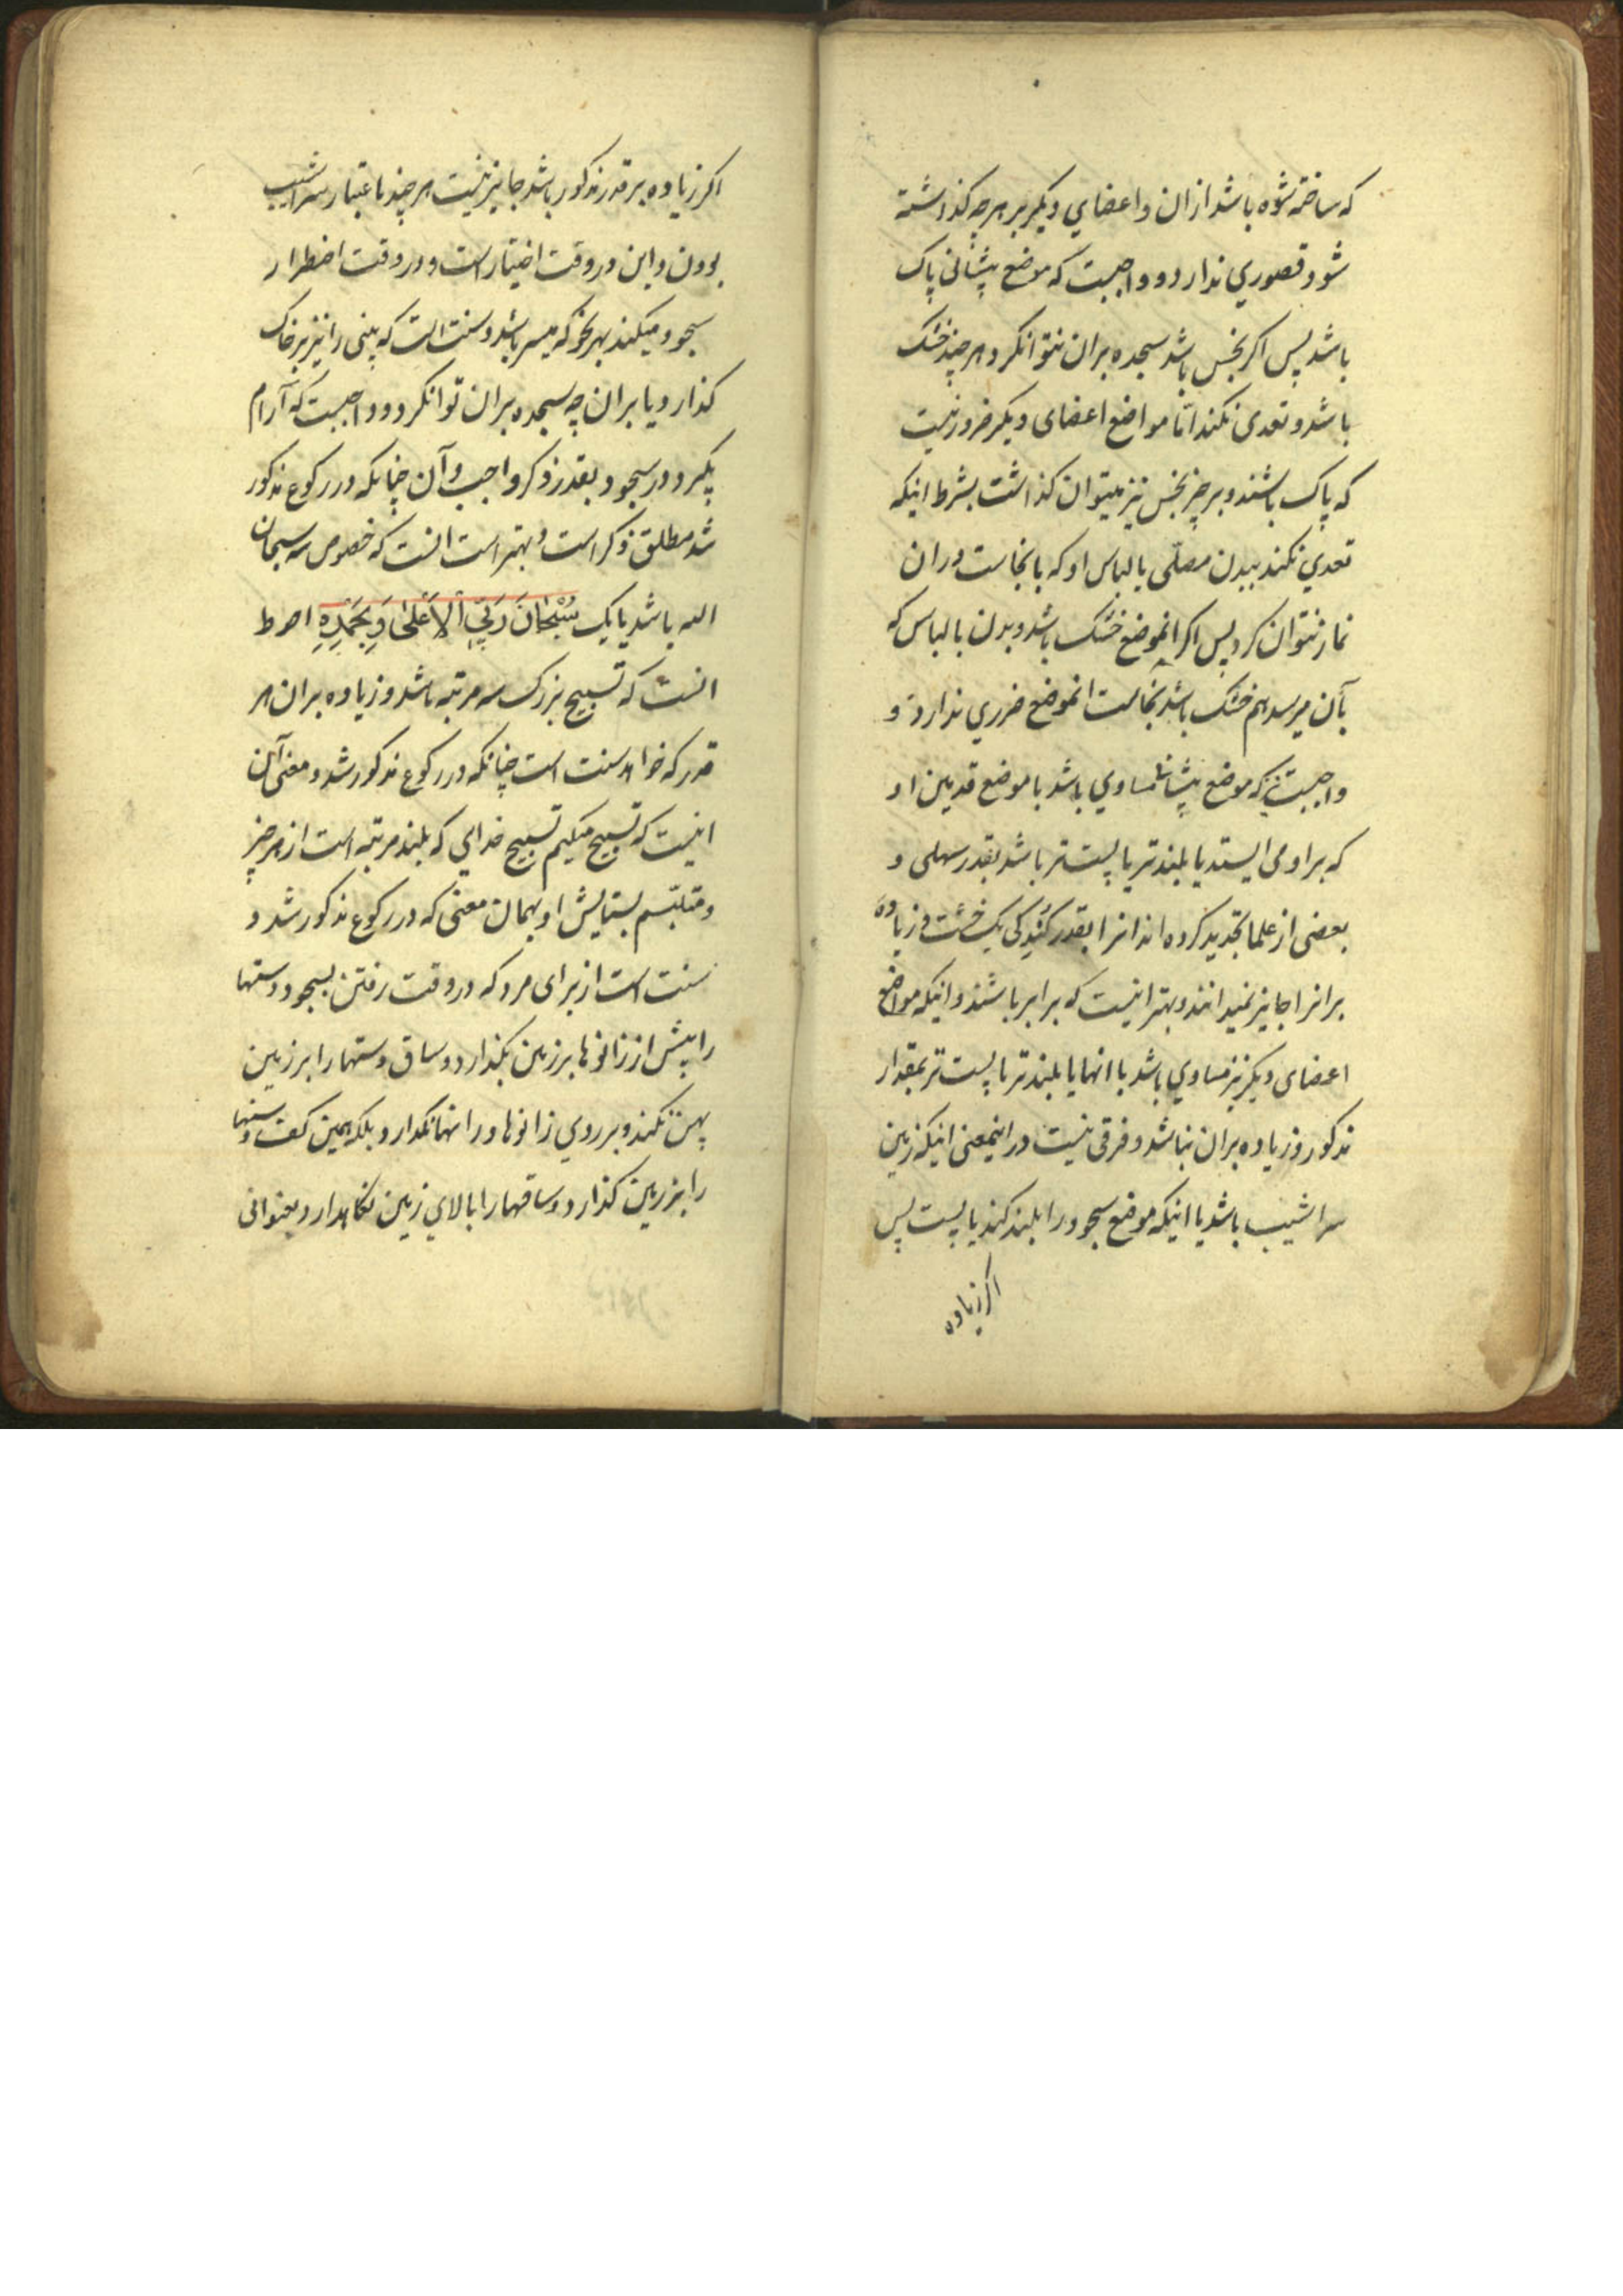 که ساخته شوه باشد ازان و اعضاي ديکر بر هر چه کذاشته
شود قصوري ندارد و واجبست که موضع پيشاني پاک
باشد پس اکر نجس باشد سجده بران نتوانکرد هر چند خشک
باشد و تعدی نکند امّا مواضع اعضای ديکر ضرور نيست
که پاک باشند و بر چيز نجس نيز ميتوان کذاشت بشرط اينکه
تعدي نکند ببدن مصلّی يا لباس او که با نجاست دران
نماز نتوان کرد پس اکر انموضع خشک باشد و بدن يا لباس که
بآن ميرسد هم خشک باشد نجاست انموضع ضرري ندارد و
واجبست که موضع پيشانی مساوي باشد با موضع قدمين او
که بر او می ايستد يا بلندتر يا پست تر باشد بقدر سهلی و
بعضی از علما تحديد کرده اند انرا بقدر کُندکی يک خشت و زياده
برانرا جايز نميدانند و بهتر اينست که برابر باشند و اينکه مواضع
اعضای ديکر نيز مساوي باشد با انها يا بلندتر يا پست تر بمقدار
مذکور و زياده بران نباشد و فرقی نيست در اينمعنی اينکه زمين
سراشيب باشد يا اينکه موضع سجود را بلند کند يا پست پس
اکر زياده
اکر زياده بر قدر مذکور باشد جايز نيست هر چند باعتبار سراشيب
بودن و اين در وقت اختيار است و در وقت اضطرار
سجود ميکند بهر نحو که ميسر باشد و سنت است که بينی را نيز بر خاک
کذارد يا بران چه سجده بران توانکرد و واجبست که آرام
بکيرد در سجود بقدر ذکر واجب و آن چنانکه در رکوع مذکور
شد مطلق ذکر است و بهتر است انست که خصوص سه سبحان
الله باشد يا يک سُبْحٰانَ رَبِّيَ الاَعْلىٰ وَبِحَمْدِهِ احوط
انست که تسبيح بزرک سه مرتبه باشد و زياده بران هر
قدر که خواهد سنت است چنانکه در رکوع مذکور شد و معنی آن
اينست که تسبيح ميکيم تسبيح خدايي که بلند مرتبه است از هر چيز
و متلبّسم بستايش او بهمان معنی که در رکوع مذکور شد و
سنت است از برای مرد که در وقت رفتن بسجود دستها
را پيش از زانوها بر زمين بکذارد و ساق دستها را بر زمين
پهن نکند و بر روي زانوها و رانها نکذارد بلکه همين کف دستها
را بر زمين کذارد و ساقها را بالاي زمين نکاهدارد بعنوانی